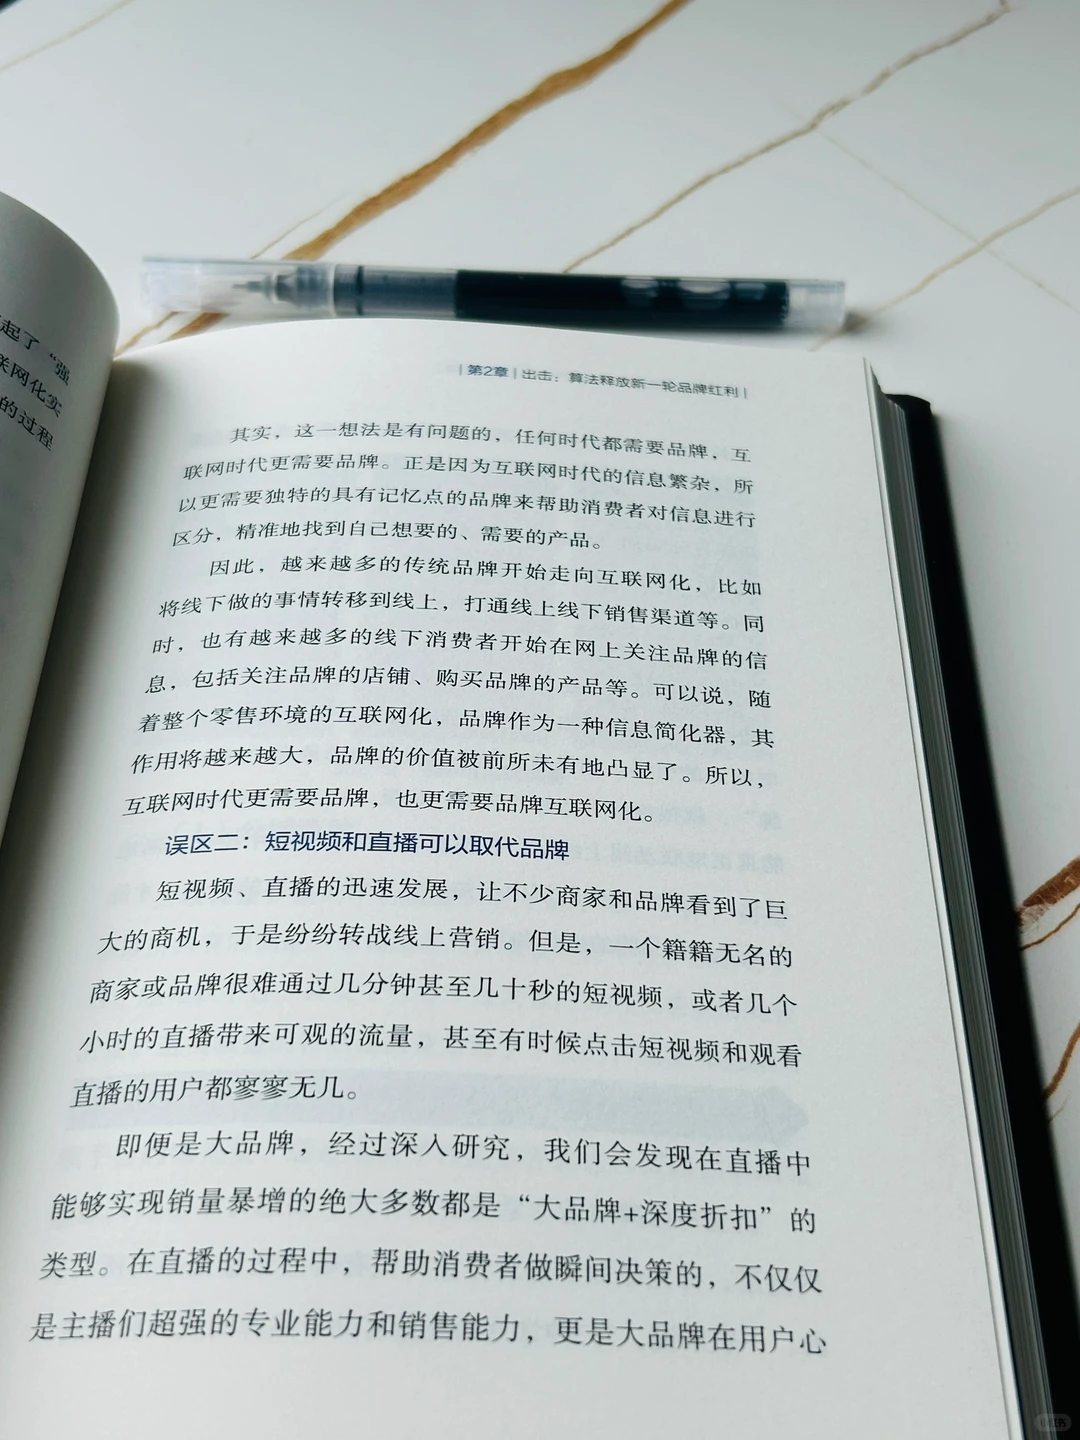 起了“强
联网化实
的过程
|第2章|出击：算法释放新一轮品牌红利|
其实，这一想法是有问题的，任何时代都需要品牌，互
联网时代更需要品牌。正是因为互联网时代的信息繁杂，所
以更需要独特的具有记忆点的品牌来帮助消费者对信息进行
区分，精准地找到自己想要的、需要的产品。
因此，越来越多的传统品牌开始走向互联网化，比如
将线下做的事情转移到线上，打通线上线下销售渠道等。同
时，也有越来越多的线下消费者开始在网上关注品牌的信
息，包括关注品牌的店铺、购买品牌的产品等。可以说，随
着整个零售环境的互联网化，品牌作为一种信息简化器，其
作用将越来越大，品牌的价值被前所未有地凸显了。所以，
互联网时代更需要品牌，也更需要品牌互联网化。
误区二：短视频和直播可以取代品牌
短视频、直播的迅速发展，让不少商家和品牌看到了巨
大的商机，于是纷纷转战线上营销。但是，一个籍籍无名的
商家或品牌很难通过几分钟甚至几十秒的短视频，或者几个
小时的直播带来可观的流量，甚至有时候点击短视频和观看
直播的用户都寥寥无几。
即便是大品牌，经过深入研究，我们会发现在直播中
能够实现销量暴增的绝大多数都是“大品牌+深度折扣”的
类型。在直播的过程中，帮助消费者做瞬间决策的，不仅仅
是主播们超强的专业能力和销售能力，更是大品牌在用户心